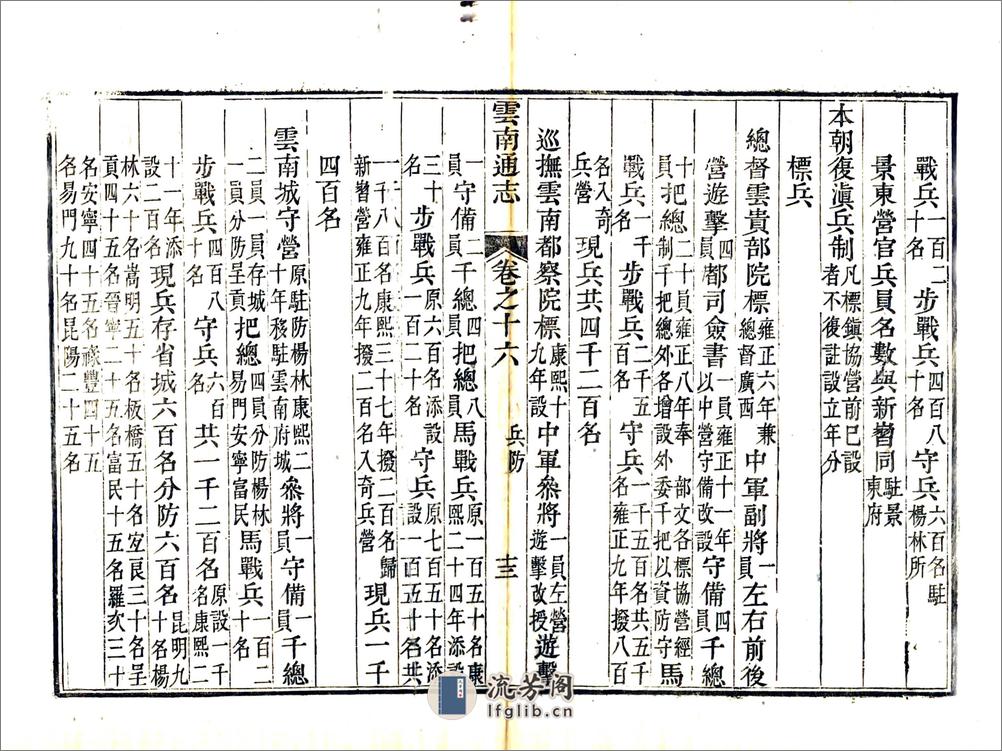 戰兵一百二十名步戰兵四百八十名守兵六百名駐楊林所
景東營官兵員名數與新嶍同駐景東府
本朝復滇兵制凡標鎮協營前已設者不復註設立年分
標兵
總督雲貴部院標雍正六年兼總督廣西中軍副將一員左右前後
營遊擊四員都司僉書一員雍正十一年以中營守備改設守備四員千總
十員把總二十員雍正八年奉 部文各標協營經制千把總外各增設外委千把以資防守馬
戰兵一千名步戰兵二千五百名守兵一千五百名共五千名雍正九年撥八百
名入奇兵營現兵共四千二百名
巡撫雲南都察院標康熙十九年設中軍參將一員左營遊擊改授遊擊
雲南通志 卷之十六 兵防 十三
一員守備二員千總四員把總八員馬戰兵原一百五十名康熙二十四年添設
三十名步戰兵原六百名添設一百二十名守兵原七百五十名添設一百五十名共
一千八百名康熙三十七年撥二百名歸新嶍營雍正九年撥二百名入奇兵營現兵一千
四百名
雲南城守營原駐防楊林康熙二十年移駐雲南府城參將一員守備一員千總
二員一員存城一員分防呈貢把總四員分防楊林易門安寧富民馬戰兵一百二十名
步戰兵四百八十名守兵六百名共一千二百名原設一千名康熙二
十一年添設二百名現兵存省城六百名分防六百名昆明九十名楊
林六十名嵩明五十名板橋五十名宜良三十名呈貢四十五名晉寧二十五名富民十五名羅次三十
名安寧四十五名祿豐四十五名易門九十名昆陽二十五名
流芳阁
lfglib.cn